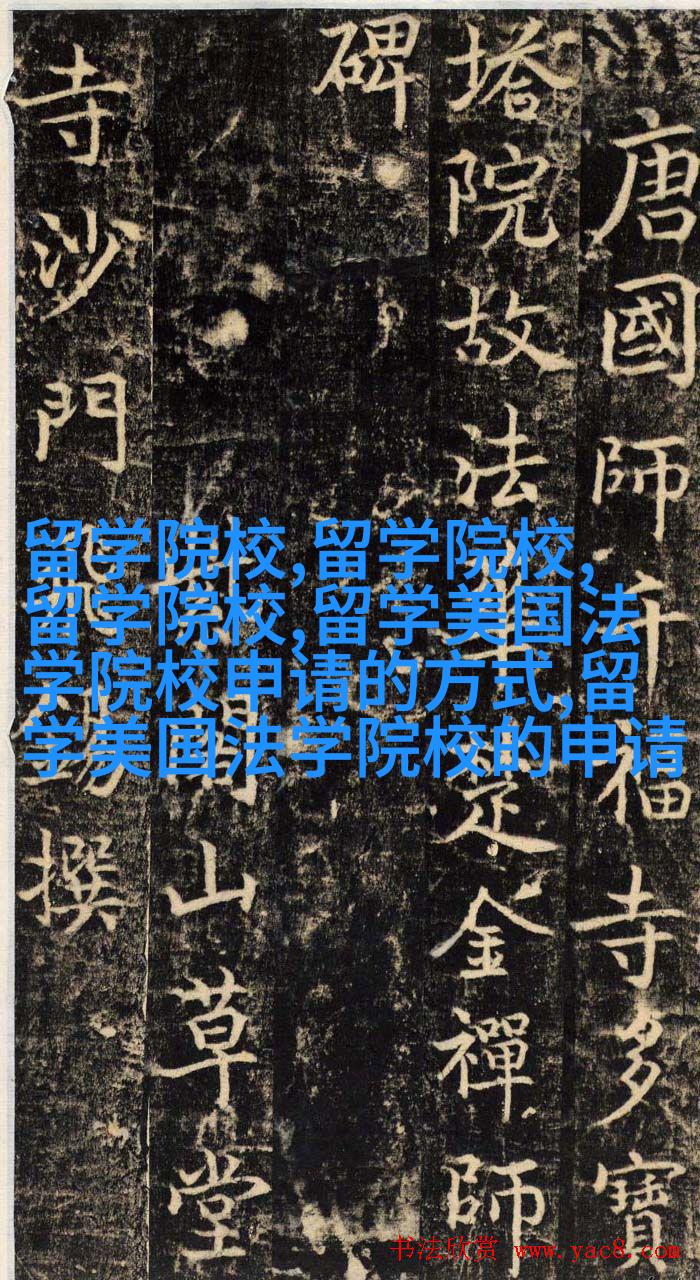 唐國師千福寺多寶
塔院故法華楚金禪師
碑
山草堂
寺沙門撰
留学院校,留学院校,
留学院校,留学美国法
学院校申请的方式,留
学美国法学院校的申请
书法欣赏 www.yac8.com